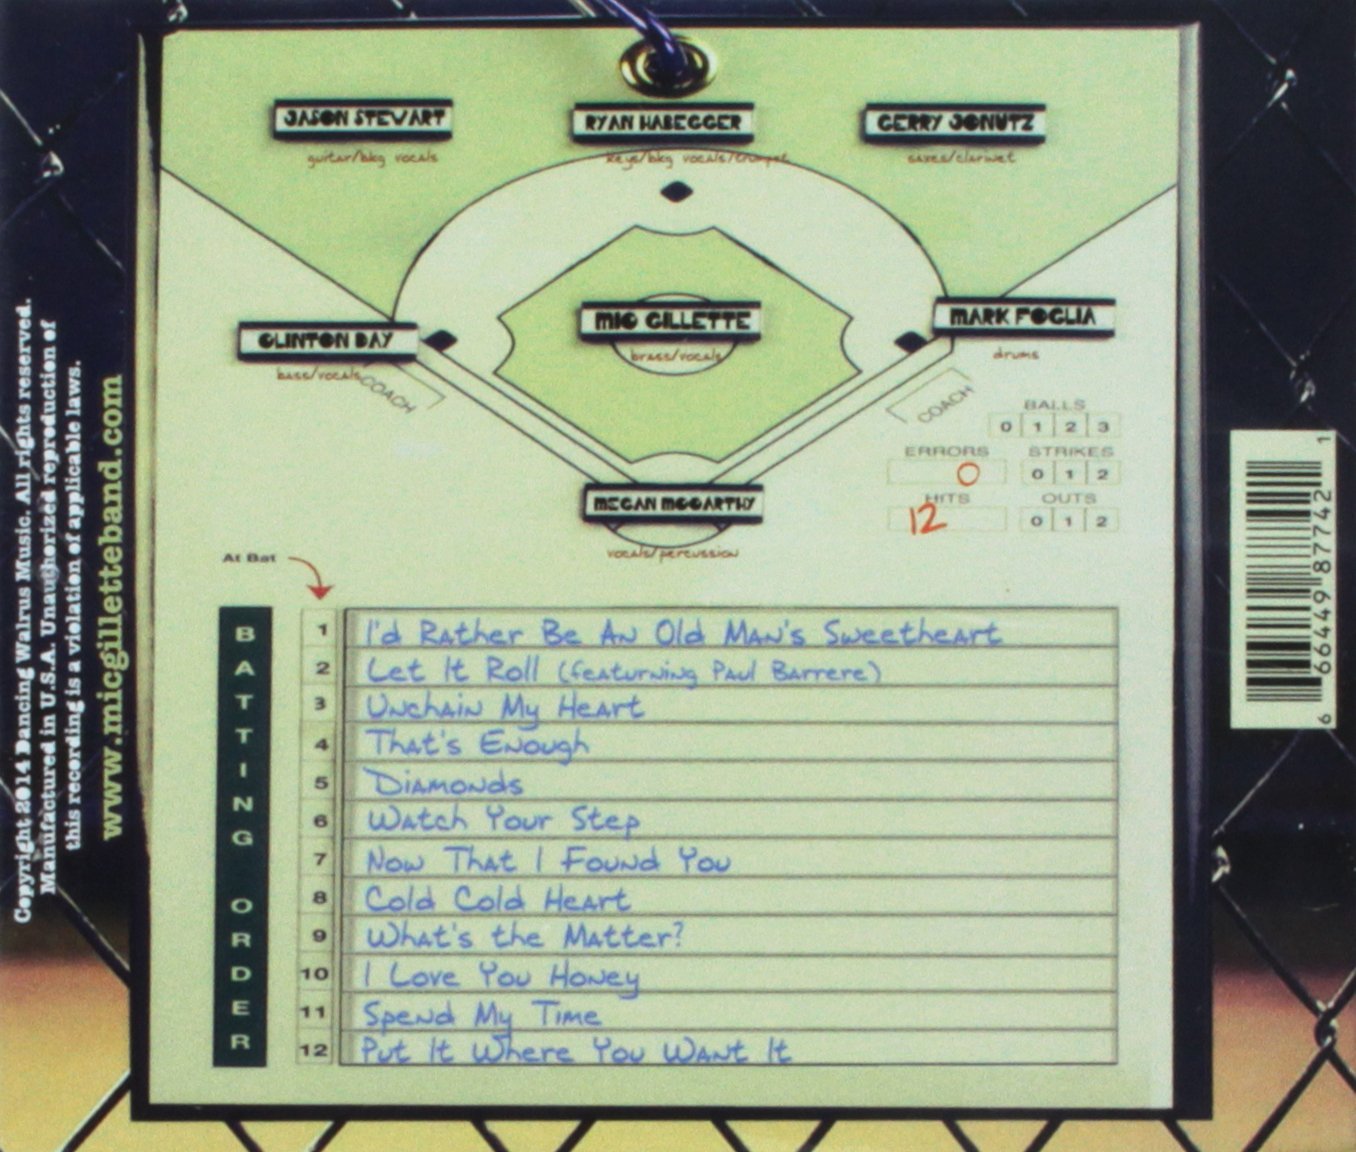 JASON STEWART
guitar/bkg vocals
RYAN HABEGGER
keys/bkg vocals/trumpet
GERRY JONUTZ
saxes/clarinet
CLINTON DAY
bass/vocals
MIC GILLETTE
brass/vocals
MARK FOGLIA
drums
COACH
COACH
MEGAN MCCARTHY
vocals/percussion
BALLS
0 1 2 3
ERRORS
0
STRIKES
0 1 2
HITS
12
OUTS
0 1 2
At Bat
BATTING ORDER
1 I'd Rather Be An Old Man's Sweetheart
2 Let It Roll (featurning Paul Barrere)
3 Unchain My Heart
4 That's Enough
5 Diamonds
6 Watch Your Step
7 Now That I Found You
8 Cold Cold Heart
9 What's the Matter?
10 I Love You Honey
11 Spend My Time
12 Put It Where You Want It
Copyright 2014 Dancing Walrus Music. All rights reserved.
Manufactured in U.S.A. Unauthorized reproduction of
this recording is a violation of applicable laws.
www.micgilletteband.com
6 66449 87742 1